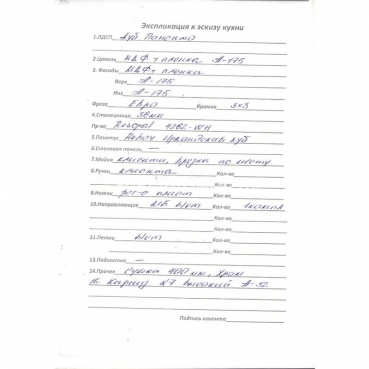 Экспликация к эскизу кухни
1.ЛДСП Дуб
2.Цоколь МДФ + пленка А-175
3. Фасады МДФ + пленка
Верх А-175
Низ А-175
Фреза Евро Кромка 3х3
4.Столешница 38мм
Пр-во
5.Плинтус Rehau дуб
6.Стеновая панель —
7.Мойка клиента, врезка по месту
8.Ручки клиента Кол-во
Кол-во
9.Ножки пласт Кол-во
10.Направляющие Б/от Кол-во
Кол-во
Кол-во
11.Петли Б/от Кол-во
Кол-во
13.Подсветка —
14.Прочее Сушка 400 мм, Хром
№7 высокий А-52
Подпись клиента